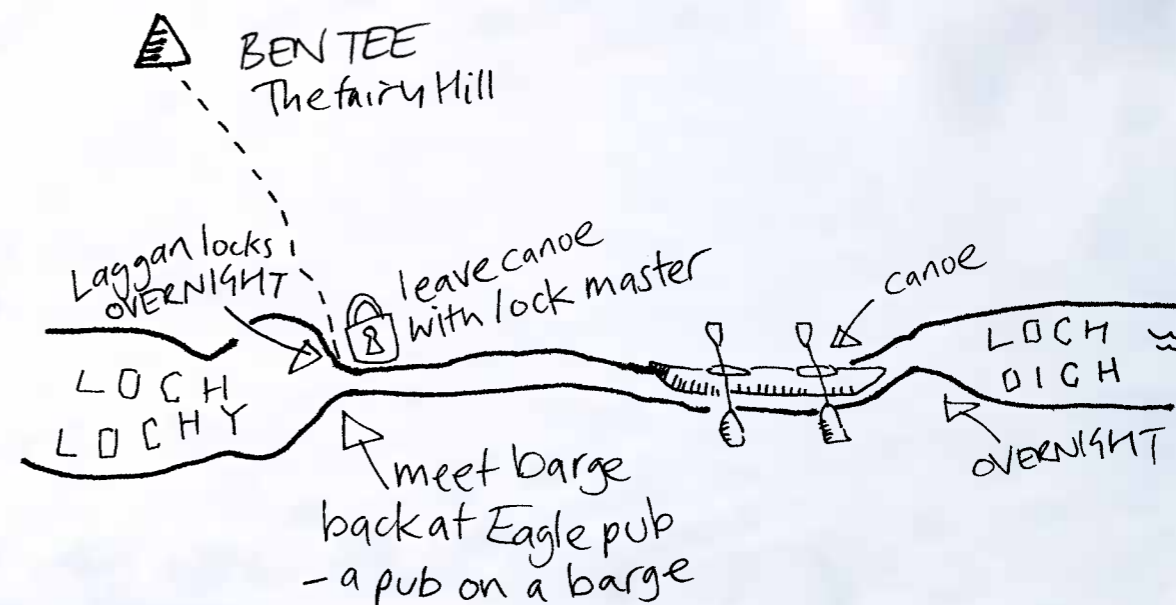 BEN TEE
The fairy Hill
Laggan locks
OVERNIGHT
leave canoe
with lock master
canoe
LOCH
LOCHY
LOCH
OICH
OVERNIGHT
meet barge
back at Eagle pub
- a pub on a barge